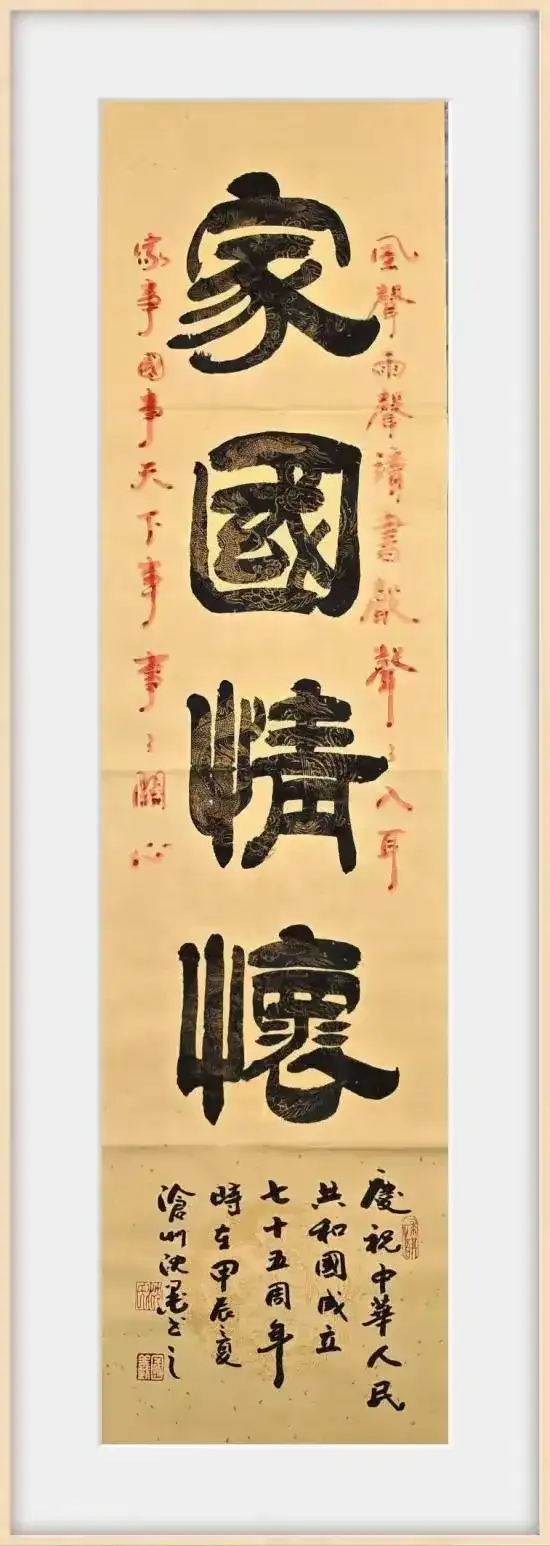 家國情懷
風聲雨聲讀書聲聲〻入耳
家事國事天下事事〻關心
慶祝中華人民
共和國成立
七十五周年
時在甲辰之夏
滄州沈墨书之